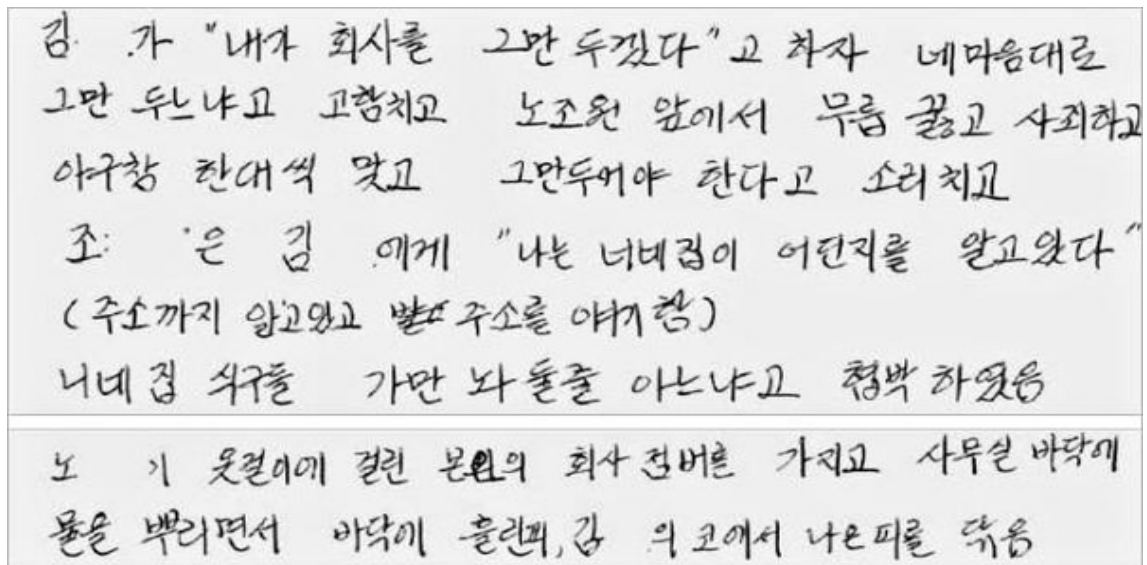 김 가 "내가 회사를 그만 두겠다"고 하자 네마음대로
그만 두느냐고 고함치고 노조원 앞에서 무릎 꿇고 사죄하고
아구창 한대씩 맞고 그만두어야 한다고 소리치고
조 은 김 에게 "나는 너네집이 어딘지를 알고왔다"
(주소까지 알고있고 주소를 야기함)
니네집 식구들 가만 놔 둘줄 아느냐고 협박 하였음
노 기 옷걸이에 걸린 본인의 회사 점버를 가지고 사무실 바닥에
물을 뿌리면서 바닥에 흘린피, 김 의 코에서 나온피를 닦음